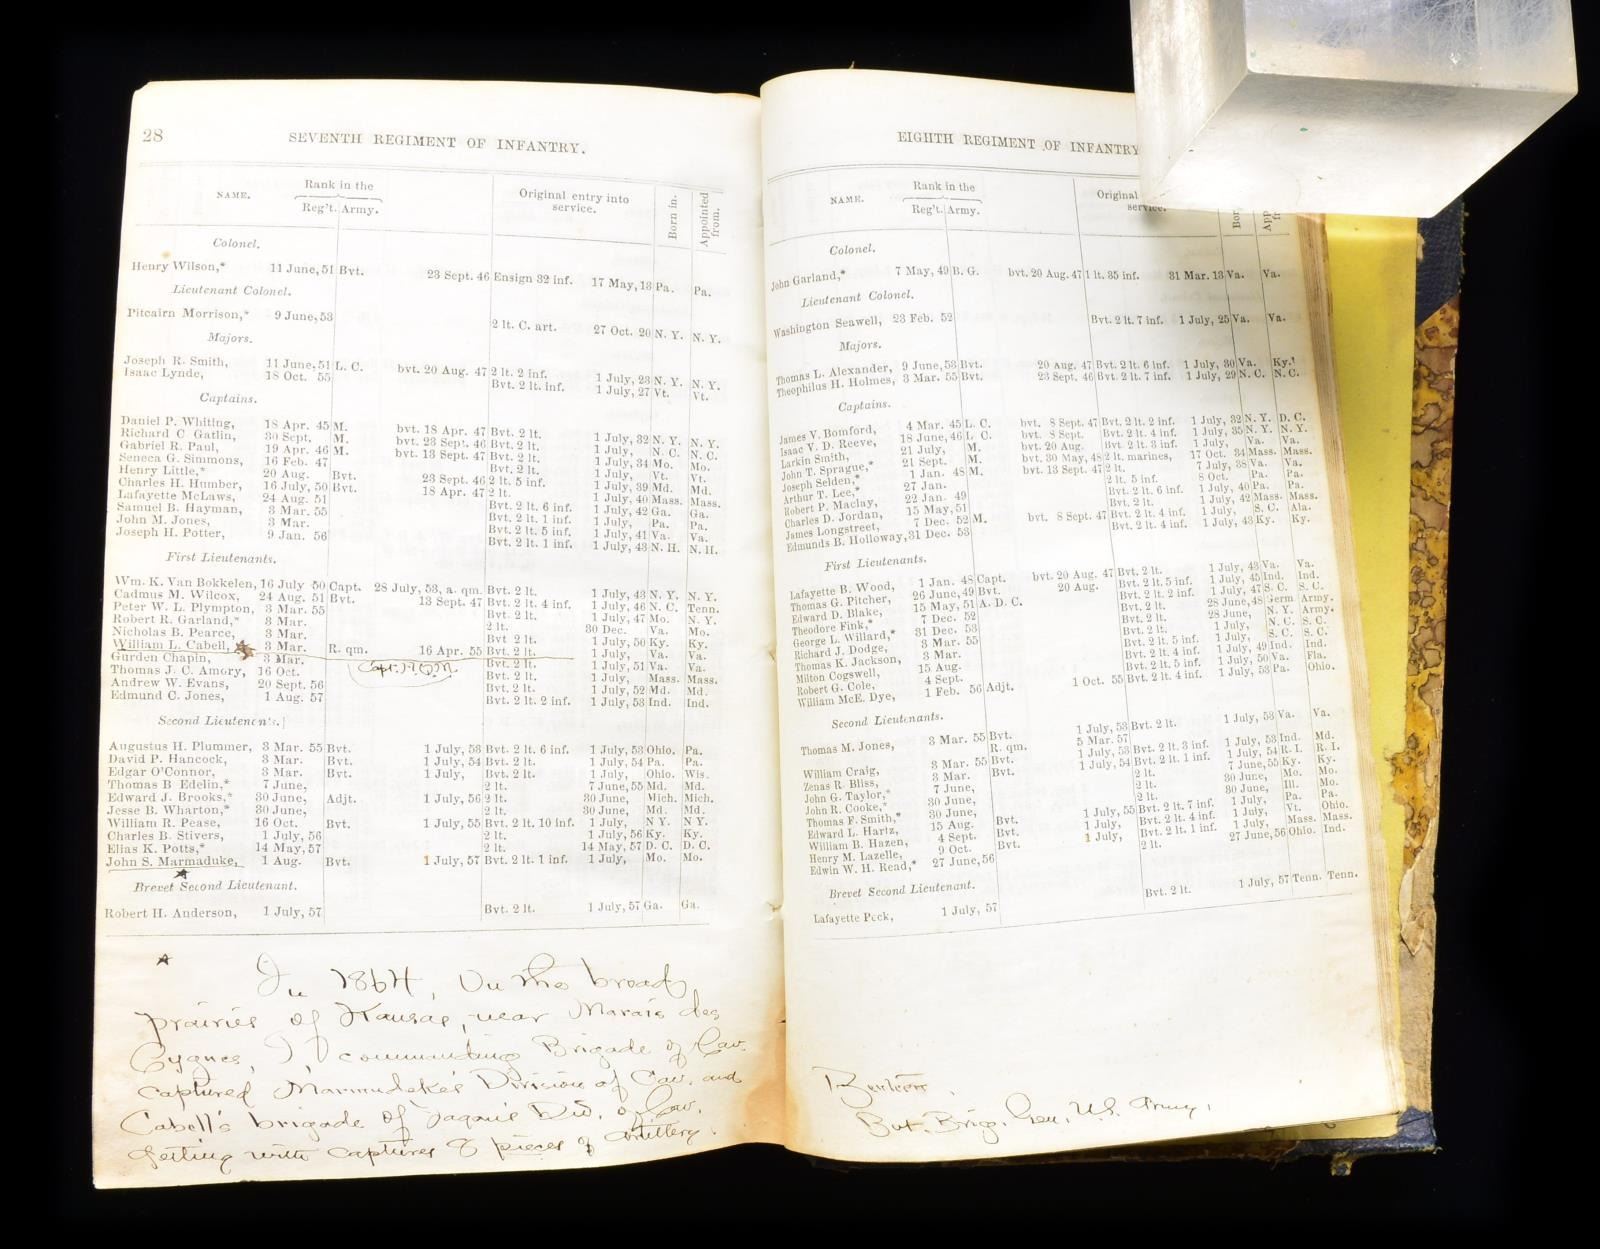 28
SEVENTH REGIMENT OF INFANTRY.
NAME. Rank in the Original entry into service. Born in. Appointed from.
Reg't. Army.
Colonel.
Henry Wilson,* 11 June, 51 Bvt. 23 Sept. 46 Ensign 32 inf. 17 May, 13 Pa. Pa.
Lieutenant Colonel.
Pitcairn Morrison,* 9 June, 53 2 lt. C. art. 27 Oct. 20 N. Y. N. Y.
Majors.
Joseph R. Smith, 11 June, 51 L. C. bvt. 20 Aug. 47 2 lt. 2 inf. 1 July, 23 N. Y. N. Y.
Isaac Lynde, 18 Oct. 55 Bvt. 2 lt. inf. 1 July, 27 Vt. Vt.
Captains.
Daniel P. Whiting, 18 Apr. 45 M. bvt. 18 Apr. 47 Bvt. 2 lt. 1 July, 32 N. Y. N. Y.
Richard C. Gatlin, 30 Sept. M. bvt. 23 Sept. 46 Bvt. 2 lt. 1 July, N. C. N. C.
Gabriel R. Paul, 19 Apr. 46 M. bvt. 13 Sept. 47 Bvt. 2 lt. 1 July, 34 Mo. Mo.
Seneca G. Simmons, 16 Feb. 47 Bvt. 2 lt. 1 July, Vt. Vt.
Henry Little,* 20 Aug. Bvt. 23 Sept. 46 2 lt. 5 inf. 1 July, 39 Md. Md.
Charles H. Humber, 16 July, 50 Bvt. 18 Apr. 47 2 lt. 1 July, 40 Mass. Mass.
Lafayette McLaws, 24 Aug. 51 Bvt. 2 lt. 6 inf. 1 July, 42 Ga. Ga.
Samuel B. Hayman, 3 Mar. 55 Bvt. 2 lt. 1 inf. 1 July, Pa. Pa.
John M. Jones, 3 Mar. Bvt. 2 lt. 5 inf. 1 July, 41 Va. Va.
Joseph H. Potter, 9 Jan. 56 Bvt. 2 lt. 1 inf. 1 July, 43 N. H. N. H.
First Lieutenants.
Wm. K. Van Bokkelen, 16 July 50 Capt. 28 July, 53, a. qm. Bvt. 2 lt. 1 July, 43 N. Y. N. Y.
Cadmus M. Wilcox, 24 Aug. 51 Bvt. 13 Sept. 47 Bvt. 2 lt. 4 inf. 1 July, 46 N. C. Tenn.
Peter W. L. Plympton, 3 Mar. 55 Bvt. 2 lt. 1 July, 47 Mo. N. Y.
Robert R. Garland,* 3 Mar. 2 lt. 30 Dec. Va. Mo.
Nicholas B. Pearce, 3 Mar. Bvt. 2 lt. 1 July, 50 Ky. Ky.
William L. Cabell, 3 Mar. R. qm. 16 Apr. 55 Bvt. 2 lt. 1 July, Va. Va.
Gurden Chapin, 3 Mar. Bvt. 2 lt. 1 July, 51 Va. Va.
Thomas J. C. Amory, 16 Oct. Bvt. 2 lt. 1 July, Mass. Mass.
Andrew W. Evans, 20 Sept. 56 Bvt. 2 lt. 1 July, 52 Md. Md.
Edmund C. Jones, 1 Aug. 57 Bvt. 2 lt. 2 inf. 1 July, 53 Ind. Ind.
Second Lieutenents.
Augustus H. Plummer, 3 Mar. 55 Bvt. 1 July, 53 Bvt. 2 lt. 6 inf. 1 July, 53 Ohio. Pa.
David P. Hancock, 3 Mar. Bvt. 1 July, 54 Bvt. 2 lt. 1 July, 54 Pa. Pa.
Edgar O'Connor, 3 Mar. Bvt. 1 July, Bvt. 2 lt. 1 July, Ohio. Wis.
Thomas B Edelin,* 7 June, 2 lt. 7 June, 55 Md. Md.
Edward J. Brooks,* 30 June, Adjt. 1 July, 56 2 lt. 30 June, Mich. Mich.
Jesse B. Wharton,* 30 June, 2 lt. 30 June, Md. Md.
William R. Pease, 16 Oct. Bvt. 1 July, 55 Bvt. 2 lt. 10 inf. 1 July, N Y. N Y.
Charles B. Stivers, 1 July, 56 2 lt. 1 July, 56 Ky. Ky.
Elias K. Potts,* 14 May, 57 2 lt. 14 May, 57 D. C. D. C.
John S. Marmaduke, 1 Aug. Bvt. 1 July, 57 Bvt. 2 lt. 1 inf. 1 July, Mo. Mo.
Brevet Second Lieutenant.
Robert H. Anderson, 1 July, 57 Bvt. 2 lt. 1 July, 57 Ga. Ga.
In 1864, On the broad
prairies of Kansas, near Marais des
Cygnes, I commanding Brigade of Cav.
captured Marmaduke's Division of Cav. and
Cabell's brigade of Div. of Cav.
getting with captures 8 pieces of artillery.
EIGHTH REGIMENT OF INFANTRY
NAME. Rank in the Original service.
Reg't. Army.
Colonel.
John Garland,* 7 May, 49 B. G. bvt. 20 Aug. 47 1 lt. 35 inf. 31 Mar. 13 Va. Va.
Lieutenant Colonel.
Washington Seawell, 23 Feb. 52 Bvt. 2 lt. 7 inf. 1 July, 25 Va. Va.
Majors.
Thomas L. Alexander, 9 June, 53 Bvt. 20 Aug. 47 Bvt. 2 lt. 6 inf. 1 July, 30 Va. Ky.
Theophilus H. Holmes, 3 Mar. 55 Bvt. 23 Sept. 46 Bvt. 2 lt. 7 inf. 1 July, 29 N. C. N. C.
Captains.
James V. Bomford, 4 Mar. 45 L. C. bvt. 8 Sept. 47 Bvt. 2 lt. 2 inf. 1 July, 32 N. Y. D. C.
Isaac V. D. Reeve, 18 June, 46 L. C. bvt. 8 Sept. Bvt. 2 lt. 4 inf. 1 July, 35 N. Y. N. Y.
Larkin Smith, 21 July, M. bvt. 20 Aug. Bvt. 2 lt. 3 inf. 1 July, Va. Va.
John T. Sprague,* 21 Sept. M. bvt. 30 May, 48 2 lt. marines, 17 Oct. 34 Mass. Mass.
Joseph Selden,* 1 Jan. 48 M. bvt. 13 Sept. 47 2 lt. 7 July, 38 Va. Va.
Arthur T. Lee,* 27 Jan. 2 lt. 5 inf. 8 Oct. Pa. Pa.
Robert P. Maclay, 22 Jan. 49 Bvt. 2 lt. 6 inf. 1 July, 40 Pa. Pa.
Charles D. Jordan, 15 May, 51 Bvt. 2 lt. 1 July, 42 Mass. Mass.
James Longstreet, 7 Dec. 52 M. bvt. 8 Sept. 47 Bvt. 2 lt. 4 inf. 1 July, S. C. Ala.
Edmunds B. Holloway, 31 Dec. 53 Bvt. 2 lt. 4 inf. 1 July, 43 Ky. Ky.
First Lieutenants.
Lafayette B. Wood, 1 Jan. 48 Capt. bvt. 20 Aug. 47 Bvt. 2 lt. 1 July, 43 Va. Va.
Thomas G. Pitcher, 26 June, 49 Bvt. 20 Aug. Bvt. 2 lt. 5 inf. 1 July, 45 Ind. Ind.
Edward D. Blake, 15 May, 51 A. D. C. Bvt. 2 lt. 2 inf. 1 July, 47 S. C. S. C.
Theodore Fink,* 7 Dec. 52 2 lt. 28 June, 48 Germ Army.
George L. Willard,* 31 Dec. 53 2 lt. 28 June, N. Y. Army.
Richard J. Dodge, 3 Mar. 55 Bvt. 2 lt. 1 July, N. C. S. C.
Thomas K. Jackson, 3 Mar. Bvt. 2 lt. 5 inf. 1 July, S. C. S. C.
Milton Cogswell, 15 Aug. Bvt. 2 lt. 4 inf. 1 July, 49 Ind. Ind.
Robert G. Cole, 4 Sept. Bvt. 2 lt. 5 inf. 1 July, 50 Va. Fla.
William McE. Dye, 1 Feb. 56 Adjt. 1 Oct. 55 Bvt. 2 lt. 4 inf. 1 July, 53 Pa. Ohio.
Second Lieutenants.
Thomas M. Jones, 3 Mar. 55 Bvt. 1 July, 53 Bvt. 2 lt. 1 July, 53 Va. Va.
R. qm. 5 Mar. 57
William Craig, 3 Mar. 55 Bvt. 1 July, 53 Bvt. 2 lt. 3 inf. 1 July, 53 Ind. Md.
Zenas R. Bliss, 3 Mar. Bvt. 1 July, 54 Bvt. 2 lt. 1 inf. 1 July, 54 R. I. R. I.
John G. Taylor,* 7 June, 2 lt. 7 June, 55 Ky. Ky.
John R. Cooke,* 30 June, 2 lt. 30 June, Mo. Mo.
Thomas F. Smith,* 30 June, 2 lt. 30 June, Ill. Mo.
Edward L. Hartz, 15 Aug. Bvt. 1 July, 55 Bvt. 2 lt. 7 inf. 1 July, Pa. Pa.
William B. Hazen, 4 Sept. Bvt. 1 July, Bvt. 2 lt. 4 inf. 1 July, Vt. Ohio.
Henry M. Lazelle, 9 Oct. Bvt. 1 July, Bvt. 2 lt. 1 inf. 1 July, Mass. Mass.
Edwin W. H. Read,* 27 June, 56 2 lt. 27 June, 56 Ohio. Ind.
Brevet Second Lieutenant.
Lafayette Peck, 1 July, 57 Bvt. 2 lt. 1 July, 57 Tenn. Tenn.
Benteen,
Bvt. Brig. Gen. U.S. Army.